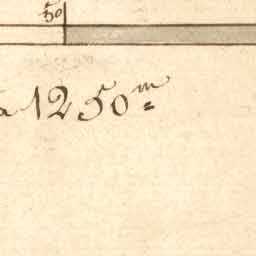 50
a 1250m